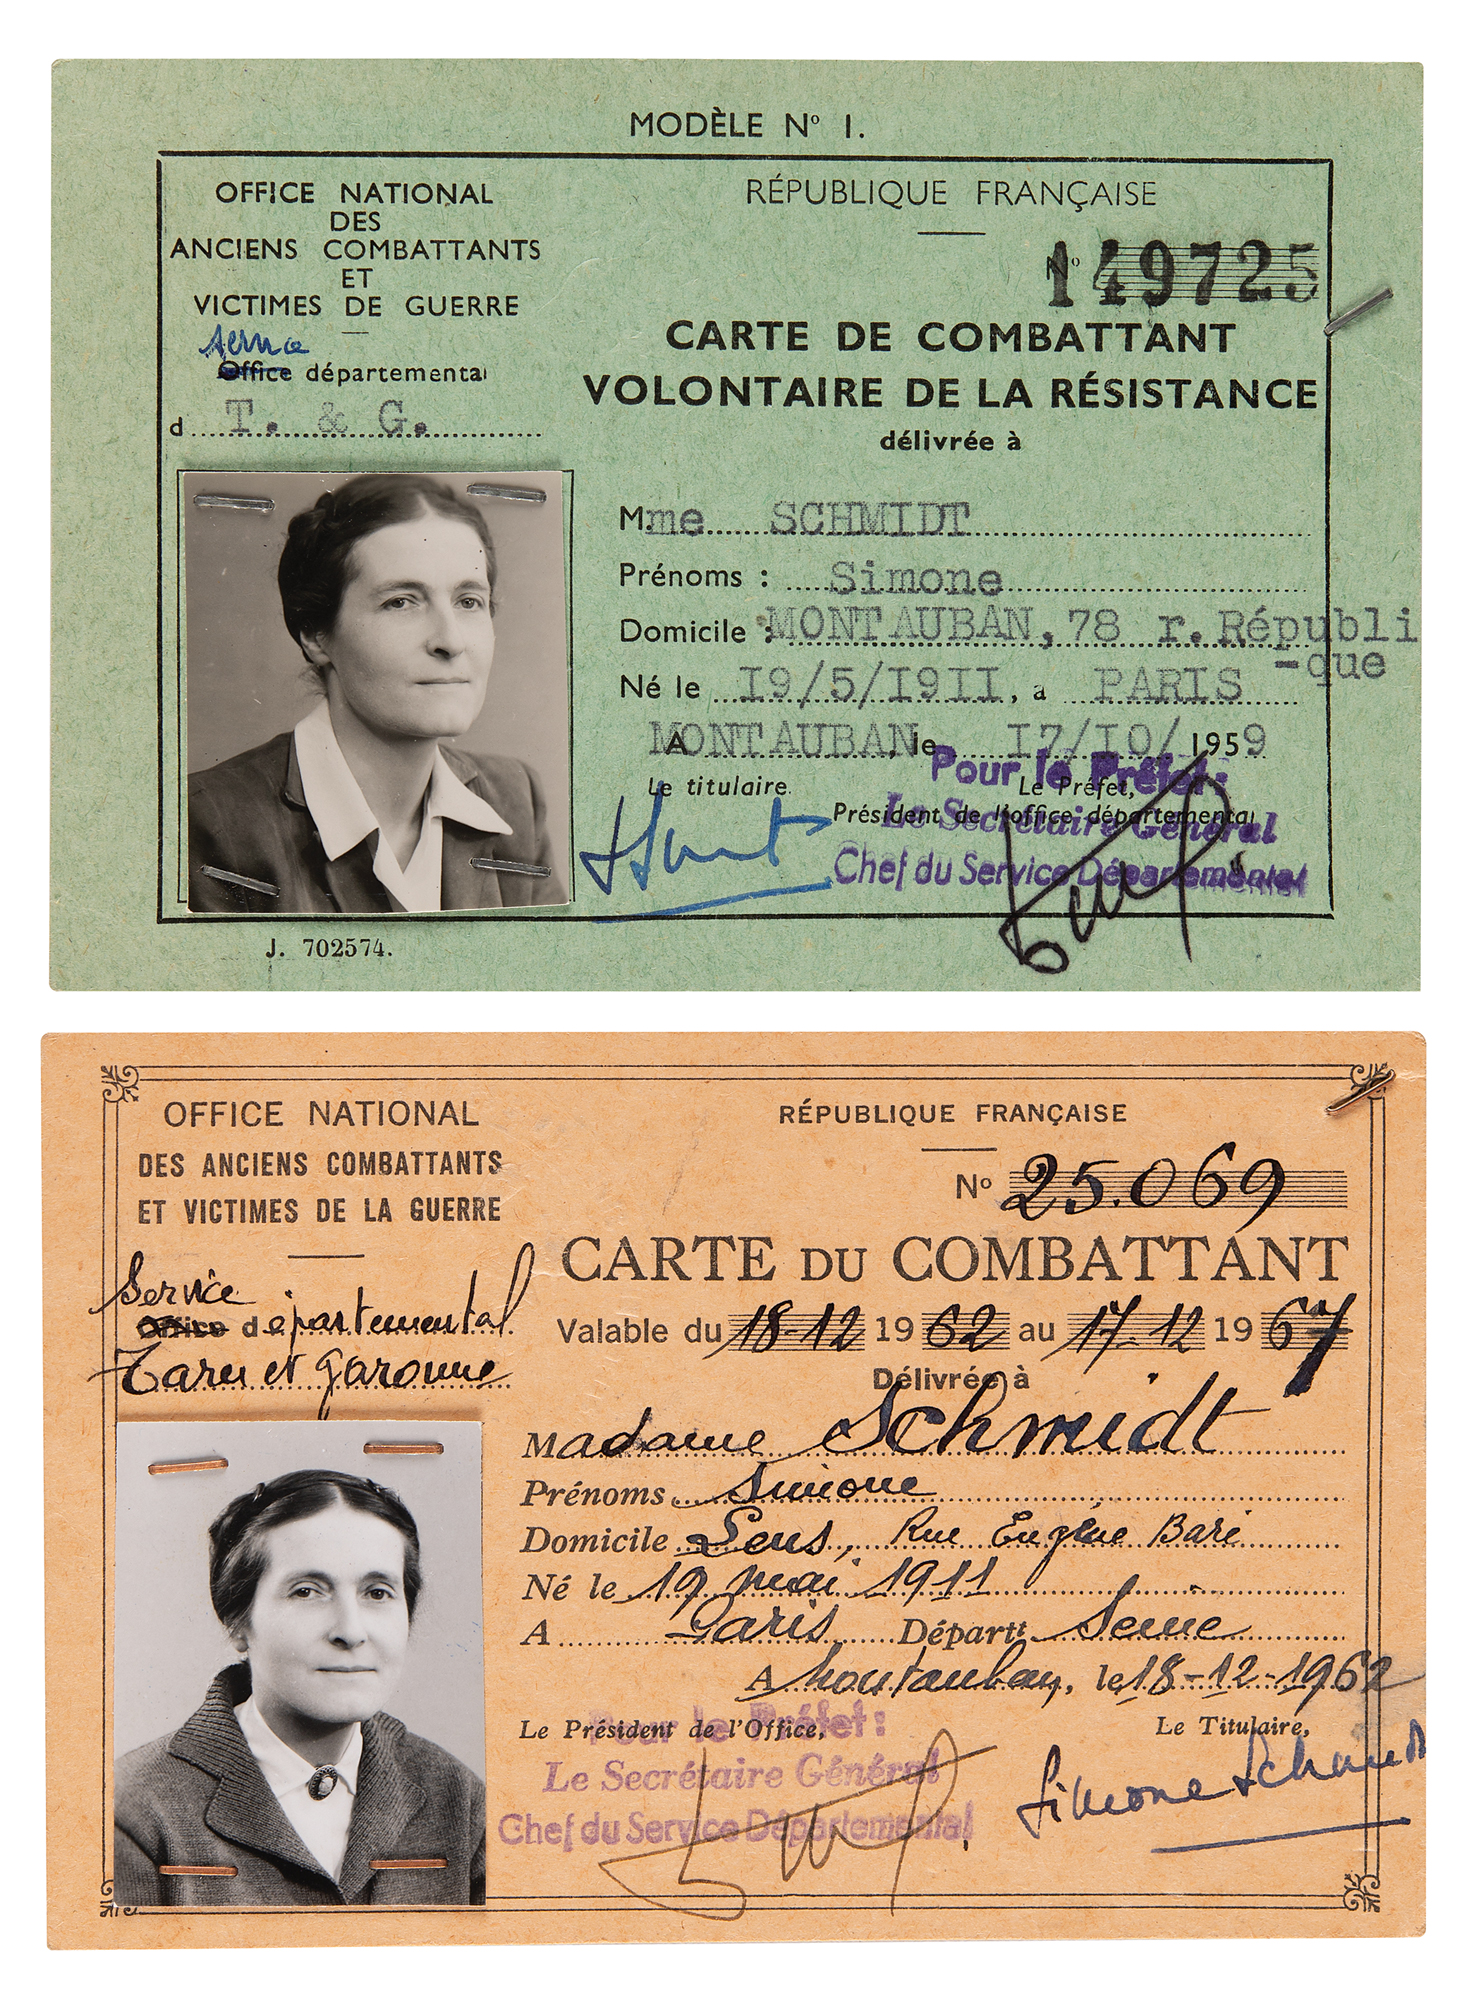 MODÈLE Nº 1.
OFFICE NATIONAL
DES
ANCIENS COMBATTANTS
ET
VICTIMES DE GUERRE
Office départemental
d T. & G.
RÉPUBLIQUE FRANÇAISE
Nº 149725
CARTE DE COMBATTANT
VOLONTAIRE DE LA RÉSISTANCE
délivrée à
M.me SCHMIDT
Prénoms : Simone
Domicile : MONTAUBAN, 78 r. Républi
-que
Né le I9/5/I9II, à PARIS
A MONTAUBAN, le I7/I0/ 1959
Le titulaire.
Le Préfet,
Président de l'office départemental
Pour le Préfet:
Le Secrétaire Général
Chef du Service Départemental
J. 702574.
OFFICE NATIONAL
DES ANCIENS COMBATTANTS
ET VICTIMES DE LA GUERRE
Service
Office départemental
Tarn et Garonne
RÉPUBLIQUE FRANÇAISE
Nº 25.069
CARTE DU COMBATTANT
Valable du 18-12 1962 au 17-12 1967
Délivrée à
Madame Schmidt
Prénoms Simone
Domicile Sens, Rue Eugène Baré
Né le 19 mai 1911
A Paris Départt Seine
A Montauban, le 18-12-1962
Le Président de l'Office,
Le Titulaire,
Pour le Préfet:
Le Secrétaire Général
Chef du Service Départemental
Simone Schmidt